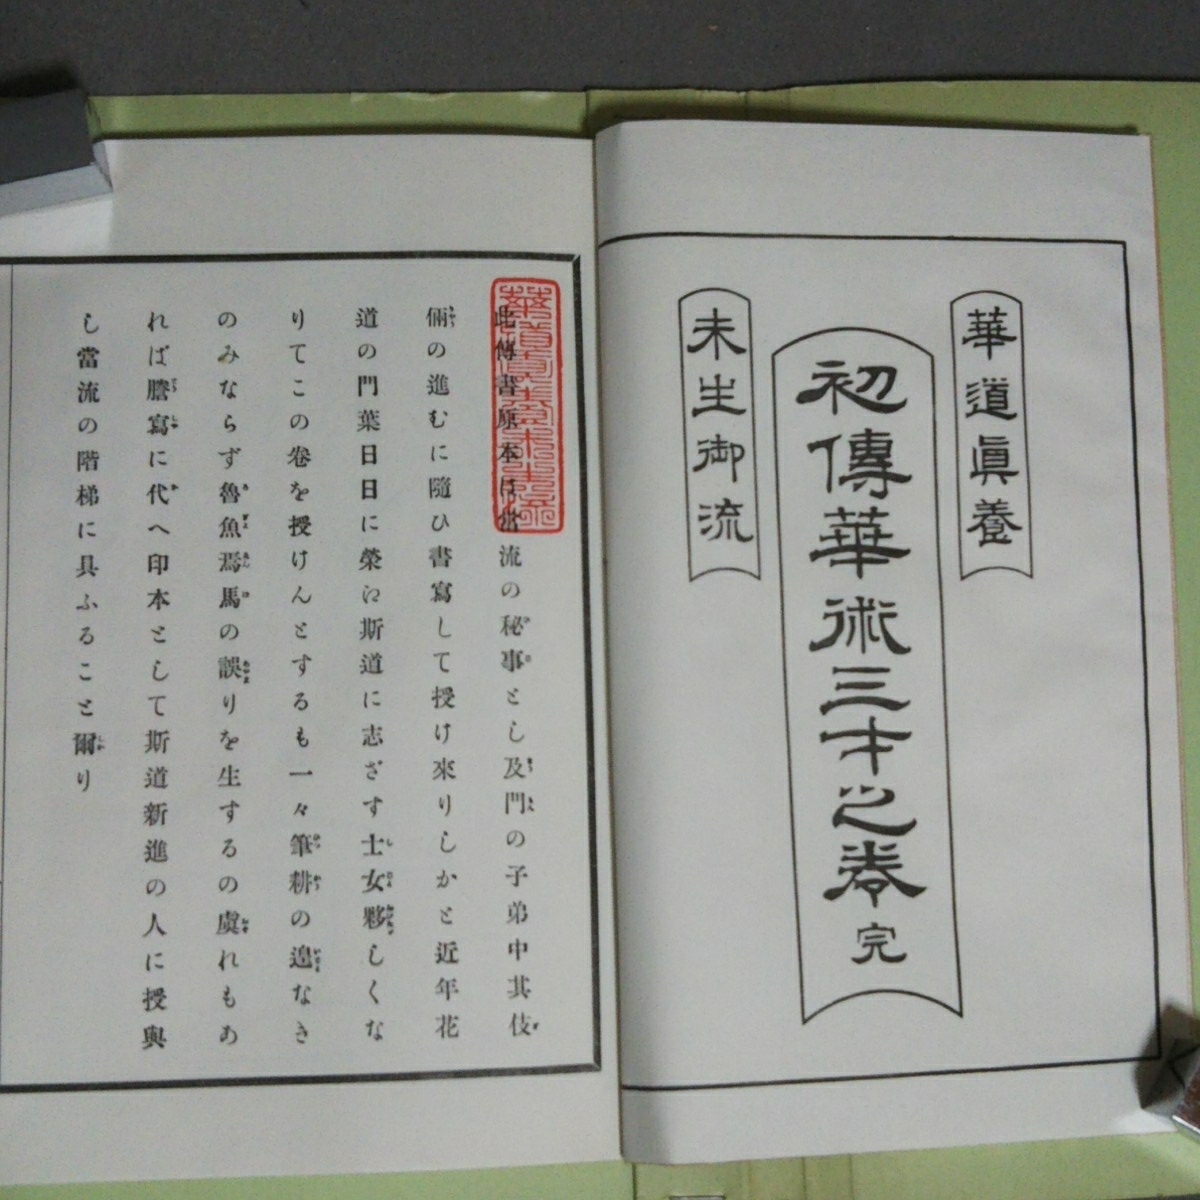 華道眞養
初傳華術三才之巻完
未生御流
此傳書原本は當流の秘事とし及門の子弟中其伎
倆の進むに隨ひ書寫して授け來りしかと近年花
道の門葉日日に榮江斯道に志ざす士女夥しくな
りてこの巻を授けんとするも一々筆耕の遑なき
のみならず魯魚焉馬の誤りを生するの虞れもあ
れば謄寫に代へ印本として斯道新進の人に授與
し當流の階梯に具ふること爾り